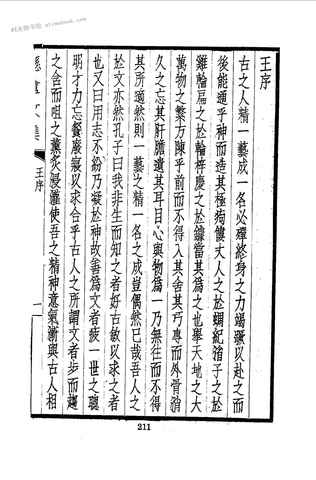 王序
古之人精一藝成一名必殫終身之力竭蹶以赴之而
後能通乎神而造其極痀僂丈人之於蜩紀渻子之於
雞輪扁之於輪梓慶之於鐻當其爲之也舉天地之大
萬物之繁方陳乎前而不得入其舍其巧專而外骨消
久之忘其肝膽遺其耳目心與物爲一乃無往而不得
其所適然則一藝之精一名之成豈偶然已哉吾人之
於文亦然孔子曰我非生而知之者好古敏以求之者
也又曰用志不紛乃凝於神故善爲文者疲一世之聰
明才力忘餐廢寢以求合乎古人之所謂文者步而趨
之含而咀之薰炙浸灌使吾之精神意氣漸與古人相
文集
王序
一
211